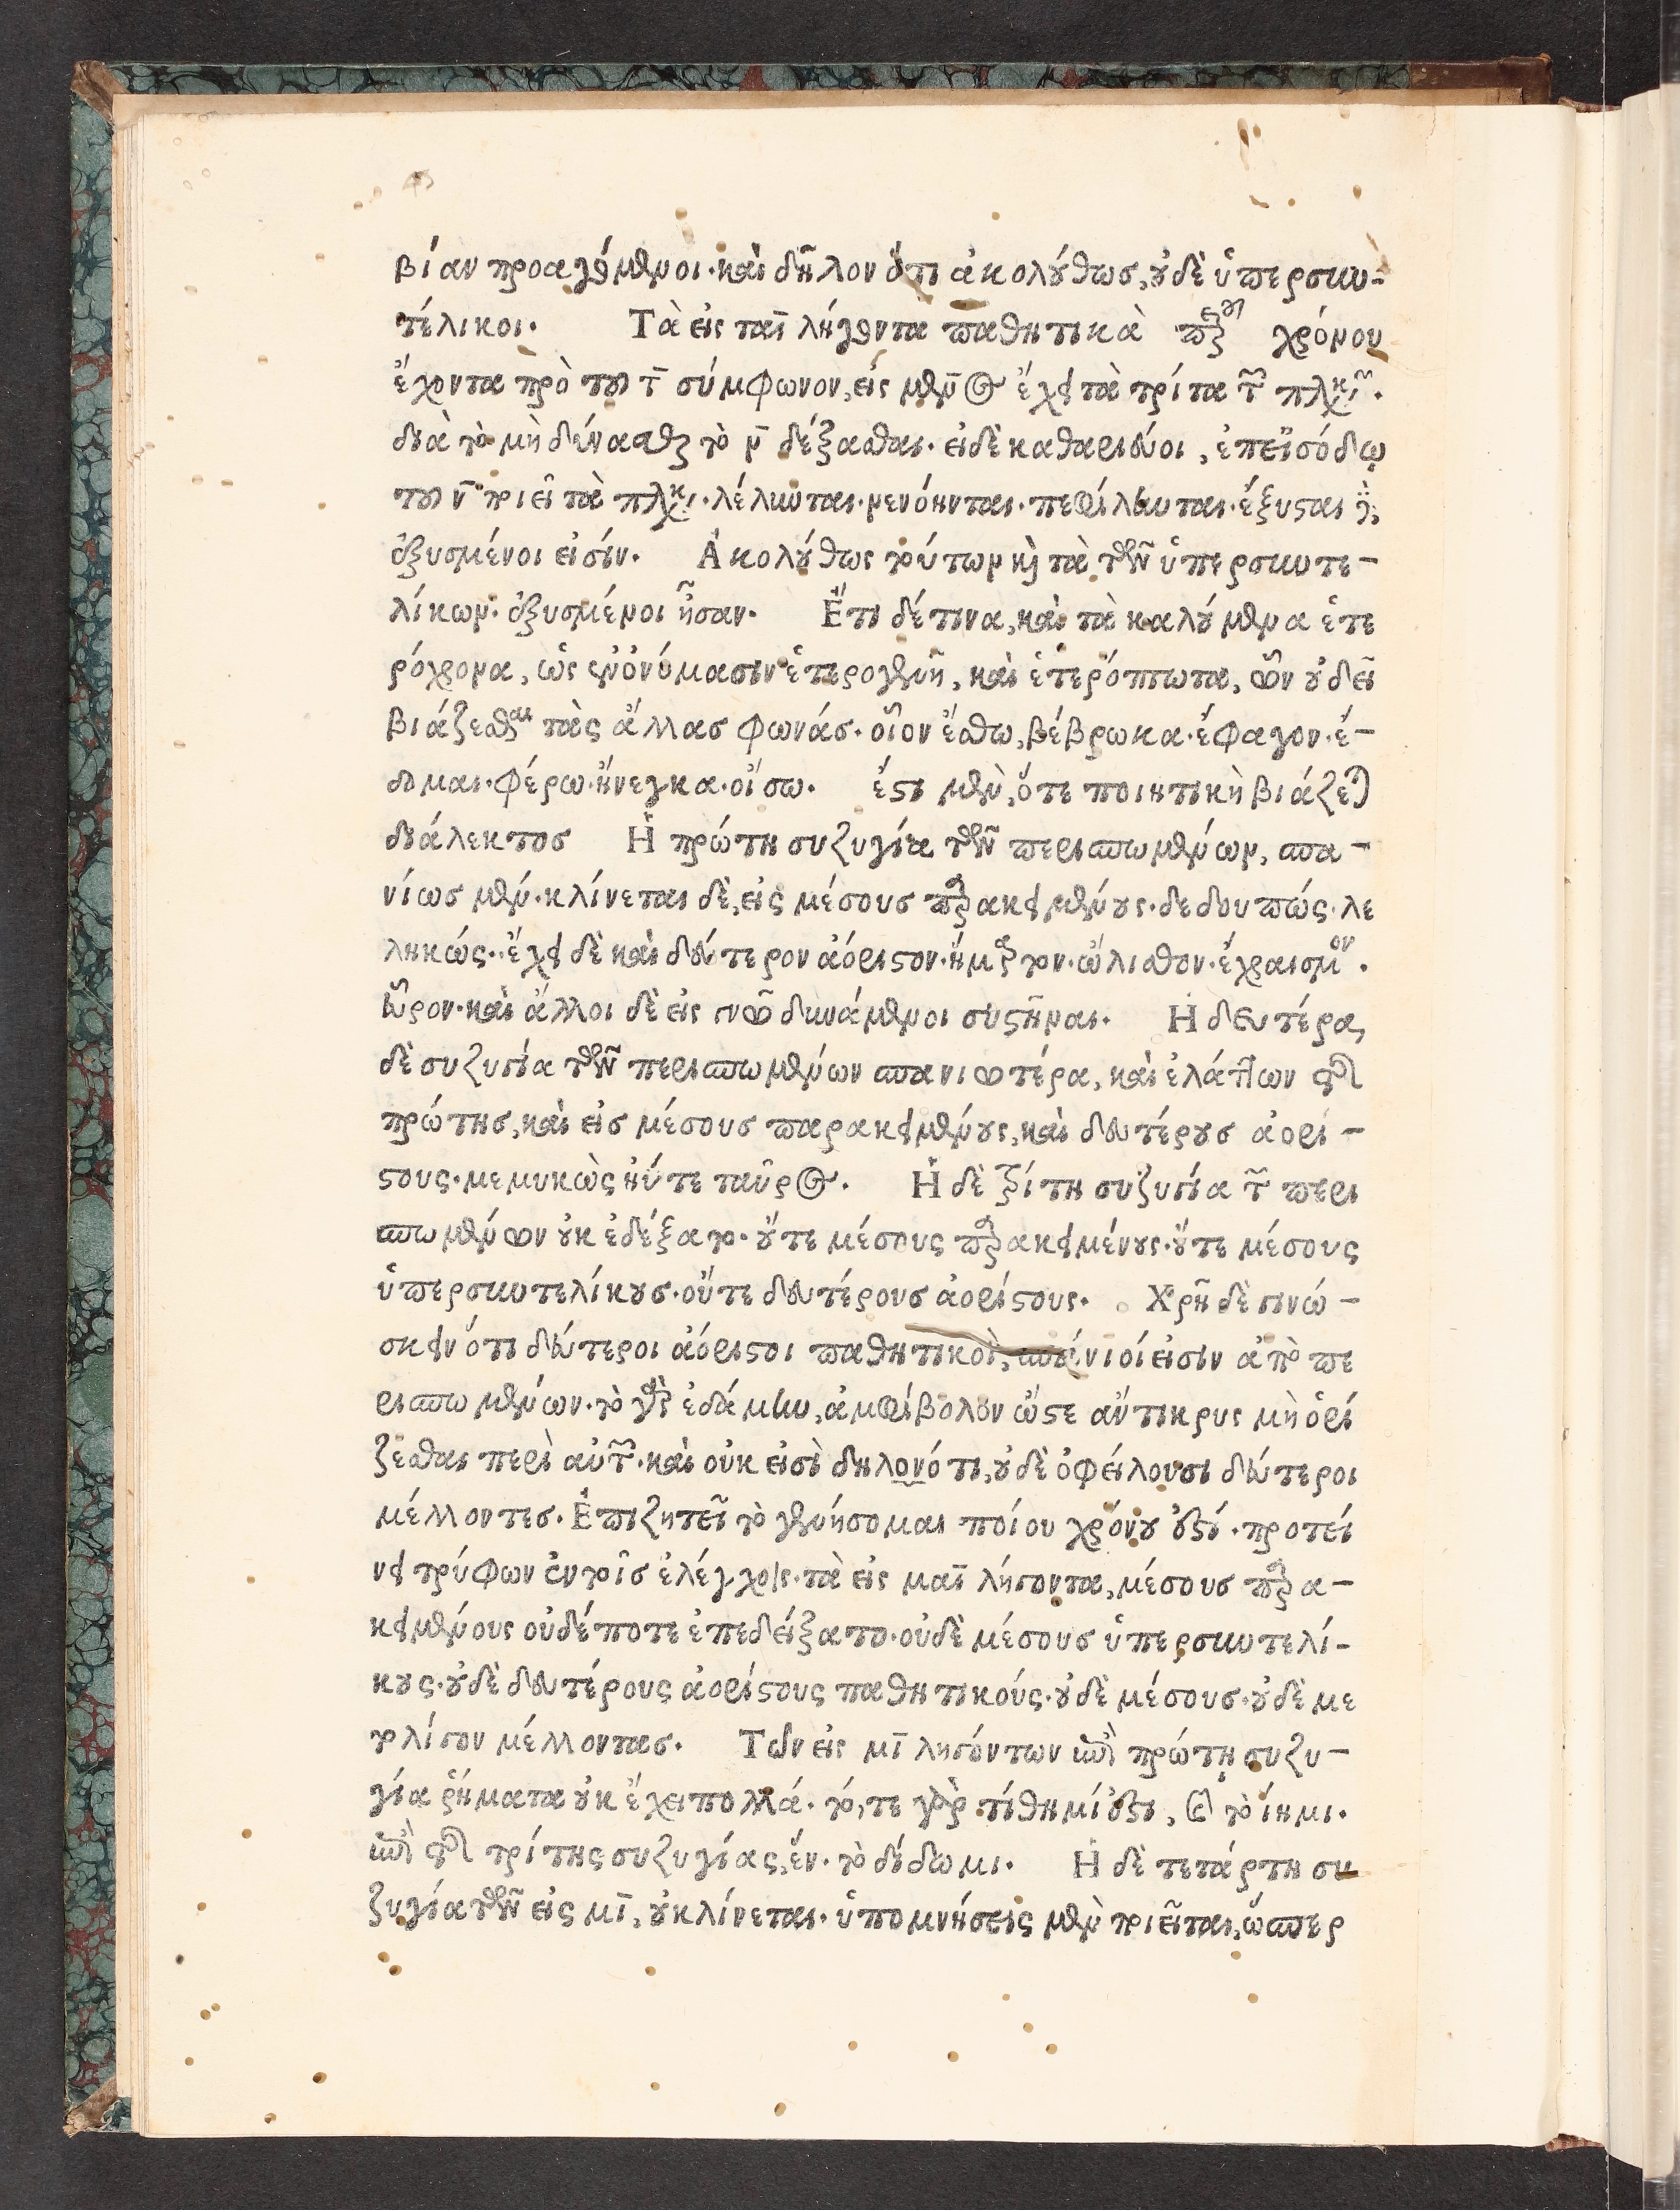 βίαν προαγόμενοι· καὶ δῆλον ὅτι ἀκολούθως, οὐδὲ ὑπερσυν-
τέλικοι. Τὰ εἰς ται λήγοντα παθητικὰ χρόνου
ἔχοντα πρὸ τοῦ τ̄ σύμφωνον, εἰς μεν̄ος ἔχει τὰ τρίτα τῶν πληκῶν.
διὰ τὸ μὴ δύνασθαι τὸ ν̄ δέξασθαι. εἰ δὲ καθαριεύοι, ἐπεϊσόδω
τοῦ ν̄ ποιεῖ τὰ πληκ. λέλυνται. νενόηνται. πεφίληνται. ἔξυσται ἢ,
ἐξυσμένοι εἰσίν. Ἀκολούθως τούτων καὶ τὰ τῶν ὑπερσυντε-
λίκων. ἐξυσμένοι ἦσαν. Ἔτι δέ τινα, καὶ τὰ καλούμενα ἑτε
ρόχρονα, ὡς ἐν ὀνόμασιν ἑτερογενῆ, καὶ ἑτερόπτωτα, ὧν οὐ δεῖ
βιάζεσθαι τὰς ἄλλας φωνάς. οἷον ἔσθω, βέβρωκα. ἔφαγον. ἔ-
δομαι. φέρω. ἤνεγκα. οἴσω. ἔστι μὲν, ὅτε ποιητικὴ βιάζεται
διάλεκτος Ἡ πρώτη συζυγία τῶν περισπωμένων, σπα-
νίως μέν. κλίνεται δὲ, εἰς μέσους παρακειμένους. δεδουπώς. λε
ληκώς. ἔχει δὲ καὶ δεύτερον ἀόριστον. ἥμαρτον. ὤλισθον. ἔχραισμον.
εὗρον. καὶ ἄλλοι δὲ εἰς δυνάμενοι συστῆναι. Ἡ δευτέρα,
δὲ συζυγία τῶν περισπωμένων σπανιωτέρα, καὶ ἐλάττων τῆς
πρώτης, καὶ εἰς μέσους παρακειμένους, καὶ δευτέρους ἀορί-
στους. μεμυκὼς ἠύτε ταῦρος. Ἡ δὲ τρίτη συζυγία τῶν περι
σπωμένων οὐκ ἐδέξατο. οὔτε μέσους παρακειμένους. οὔτε μέσους
ὑπερσυντελίκους. οὔτε δευτέρους ἀορίστους. Χρὴ δὲ γινώ-
σκειν ὅτι δεύτεροι ἀόριστοι παθητικοὶ, σπάνιοί εἰσιν ἀπὸ πε
ρισπωμένων. τὸ γὰρ ἐδάμην, ἀμφίβολον ὥστε ἄντικρυς μὴ ὁρί
ζεσθαι περὶ αὐτῶν. καὶ οὐκ εἰσὶ δηλονότι, οὐδὲ ὀφείλουσι δεύτεροι
μέλλοντες. Ἐπιζητεῖ τὸ γενήσομαι ποίου χρόνου ἐστί. προτεί
νει τρύφων ἐν τοῖς ἐλέγχοις. τὰ εἰς μαι λήγοντα, μέσους παρα-
κειμένους οὐδέποτε ἐπεδείξατο. οὐδὲ μέσους ὑπερσυντελί-
κους. οὐδὲ δευτέρους ἀορίστους παθητικούς. οὐδὲ μέσους. οὐδὲ με
τ᾽ λίγον μέλλοντας. Τῶν εἰς μῑ ληγόντων ἡ πρώτη συζυ-
γία ῥήματα οὐκ ἔχει πολλά. τό, τε γὰρ τίθημί ἐστι, καὶ τὸ ἵημι.
τῆς τρίτης συζυγίας, ἕν. τὸ δίδωμι. Ἡ δὲ τετάρτη συ
ζυγία τῶν εἰς μῑ, οὐ κλίνεται. ὑπομνήσεις μὲν ποιεῖται, ὥσπερ